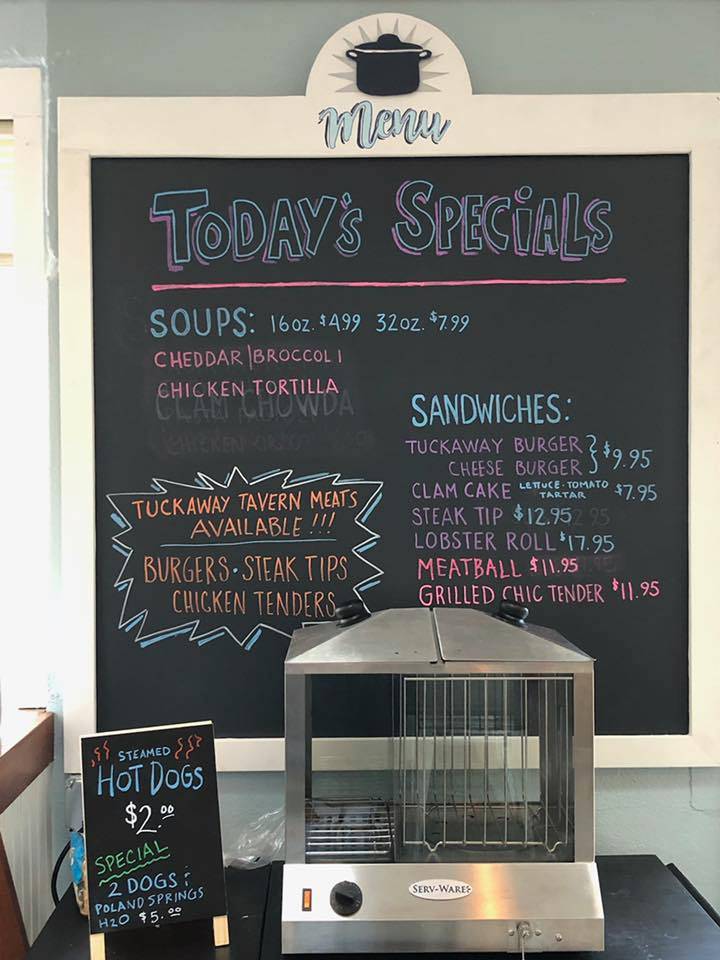 Menu
TODAY'S SPECIALS
SOUPS: 16oz. $4.99 32oz. $7.99
CHEDDAR/BROCCOLI
CHICKEN TORTILLA
CLAM CHOWDA
SANDWICHES:
TUCKAWAY BURGER
CHEESE BURGER } $9.95
CLAM CAKE LETTUCE·TOMATO TARTAR $7.95
STEAK TIP $12.95
LOBSTER ROLL $17.95
MEATBALL $11.95
GRILLED CHIC TENDER $11.95
TUCKAWAY TAVERN MEATS
AVAILABLE!!!
BURGERS·STEAK TIPS
CHICKEN TENDERS
STEAMED
HOT DOGS
$2.00
SPECIAL
2 DOGS &
POLAND SPRINGS
H2O $5.00
SERV-WARE